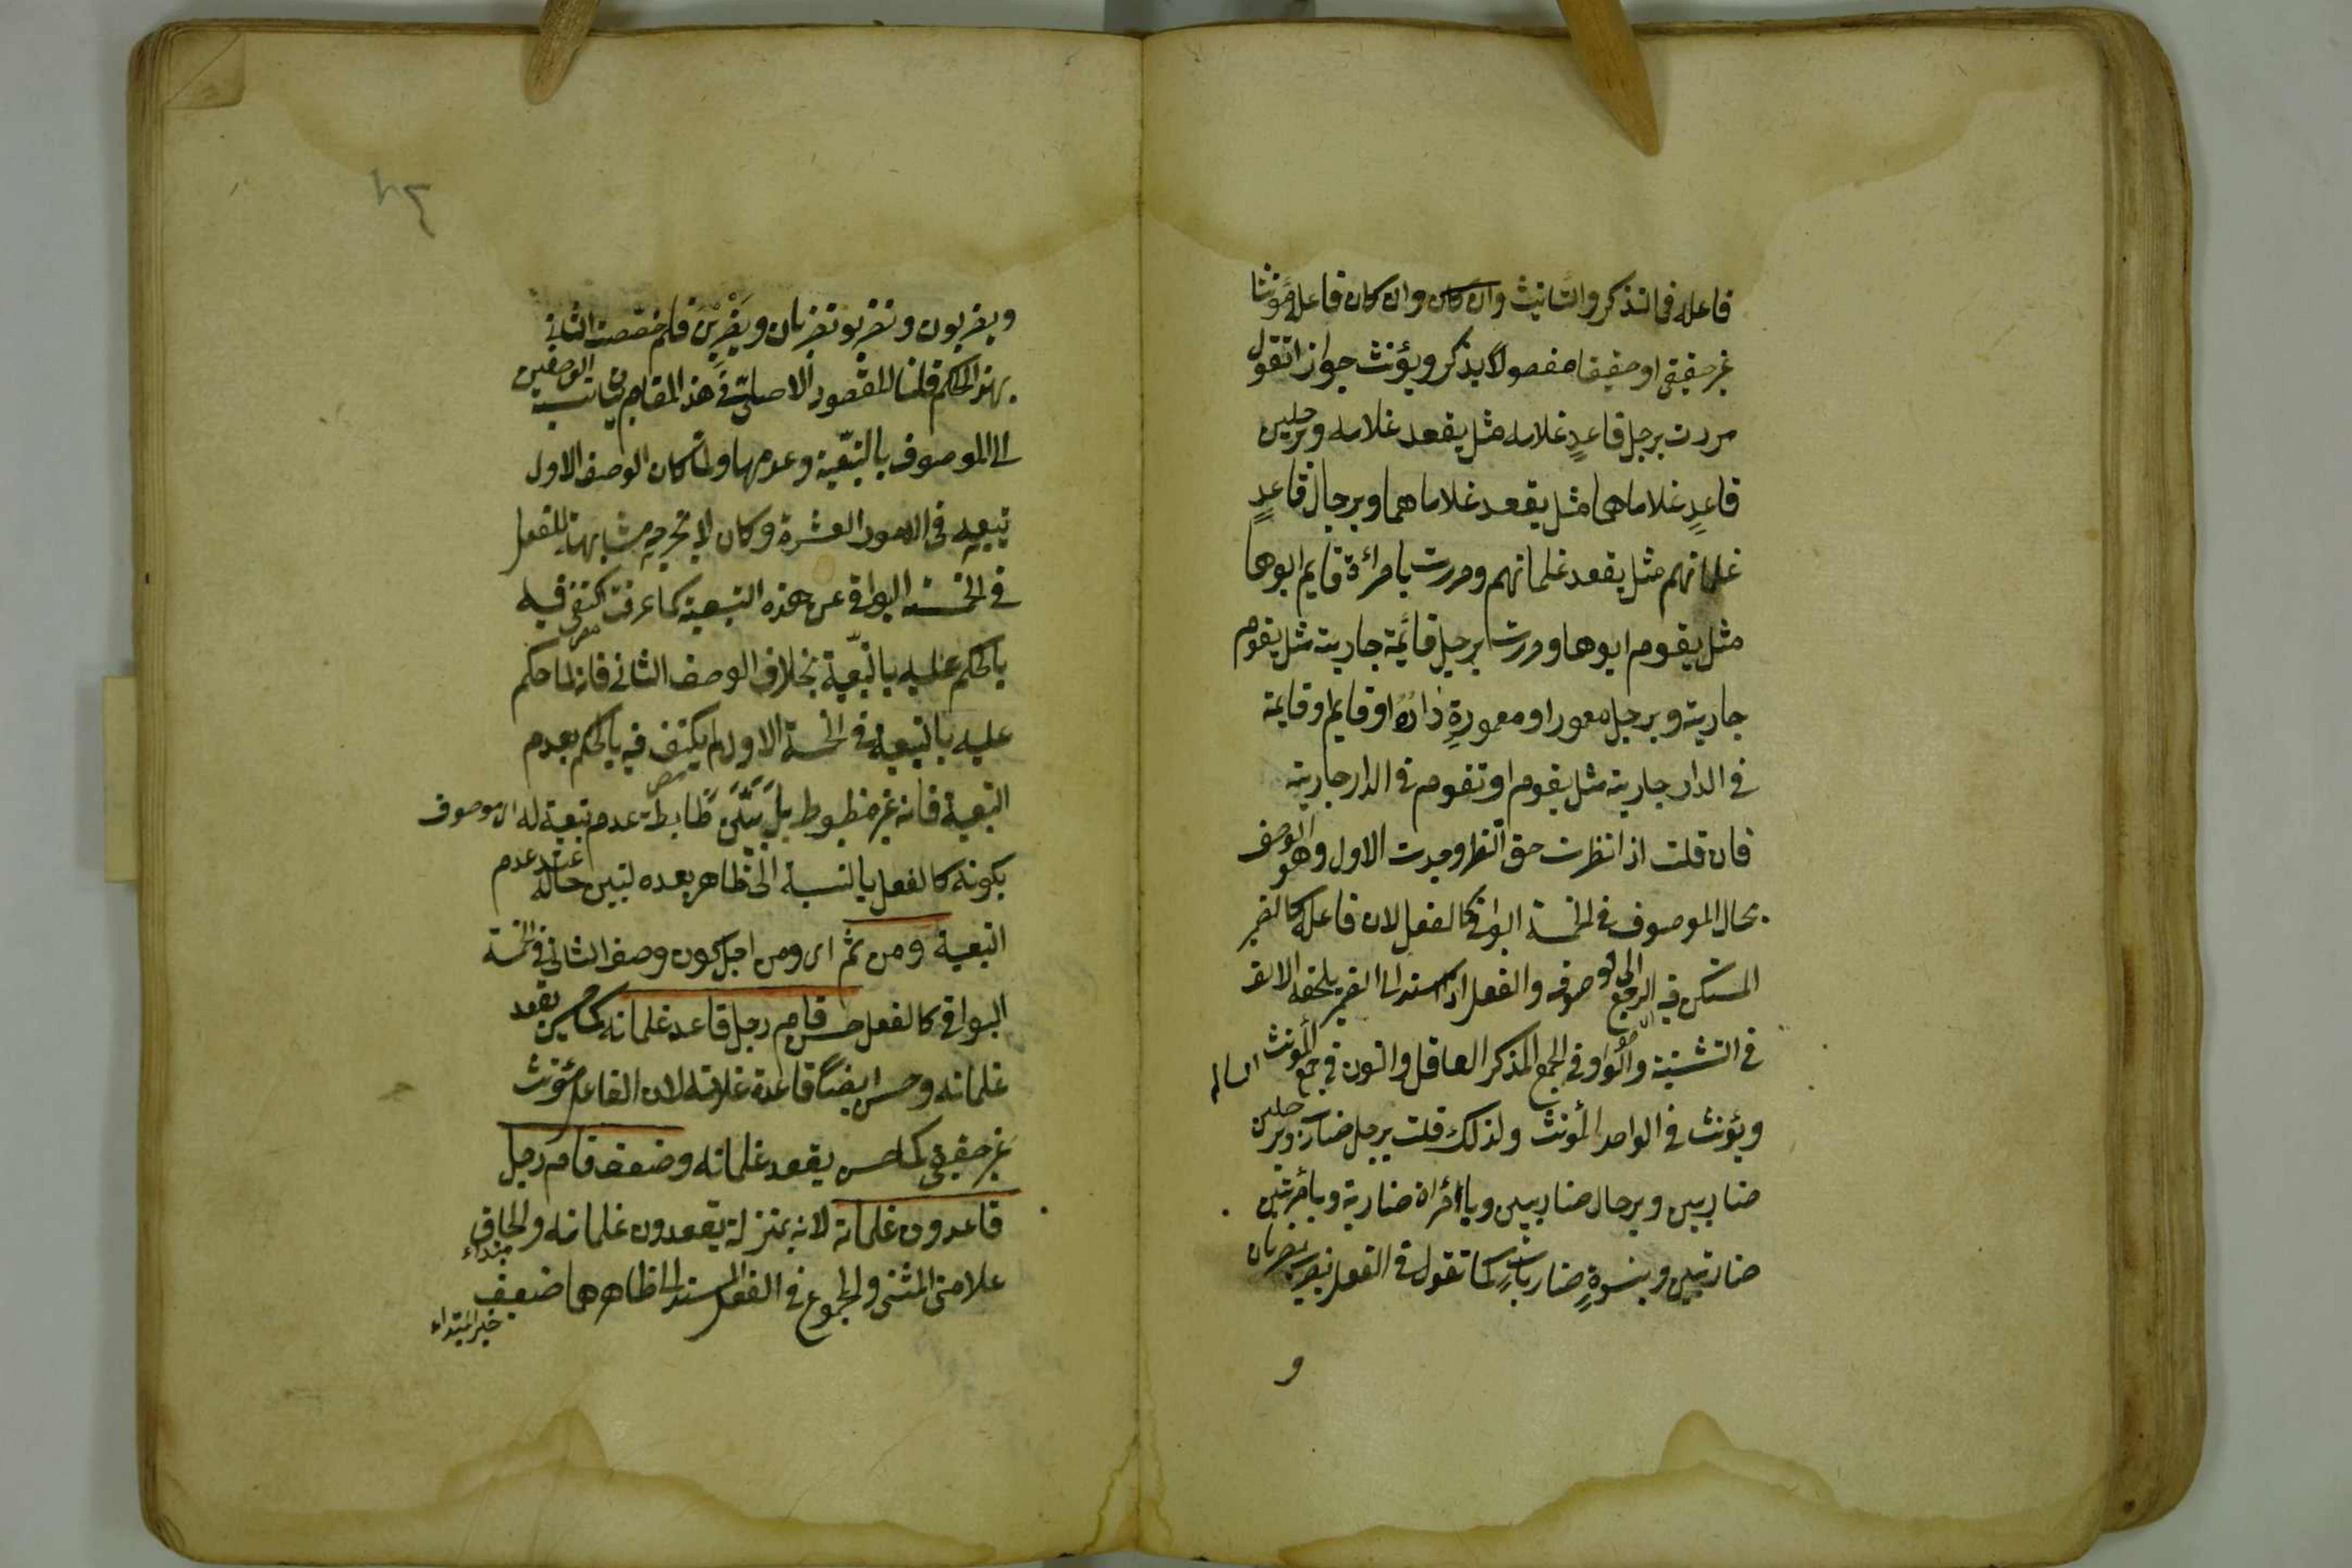 فاعله فى التذكر والتانيث وان كان وان كان فاعله مؤنثا
غير حقيقى او حقيقيا مفصولا يذكر ويؤنث جوازا تقول
مررت برجل قاعدٍ غلامه مثل يقعد غلامه وبرجلين
قاعدٍ غلاماهما مثل يقعد غلاماهما وبرجال قاعدٍ
غلمانهم مثل يقعد غلمانهم ومررت بامرائة قايم ابوها
مثل يقوم ابوها ومررت برجل قائمة جارية مثل يقوم
جارية وبرجل معمور او معمورةٍ داره او قايم او قايمة
فى الدار جارية مثل يقوم او تقوم فى الدار جارية
فان قلت اذا نظرت حق النظر وجدت الاول وهو الوصف
بحال الموصوف فى الخمسة البواقى كالفعل لان فاعله كالضمير
المستكن فيه الراجع الى موصوفه والفعل اذا اسند الى الضمير يلحقه الالف
فى التثنية والواو فى الجمع المذكر العاقل والنون فى جمع المؤنث السالم
ويؤنث فى الواحد المؤنث ولذلك قلت برجل ضارب وبرجلين
ضاربين وبرجال ضاربين وبامرأة ضاربة وبامرأتين
ضاربتين وبنسوةٍ ضارباتٍ كما تقول فى الفعل يضرب يضربان
و
ويضربون وتضرب وتضربان ويضربن فلم خصصت الثانى
بهذا الحكم قلنا المقصود الاصلى فى هذا المقام بيان نسبة الوصفين
الى الموصوف بالتبعية وعدمها ولما كان الوصف الاول
تبعيه فى الامور العشرة وكان لا يخرجه مشابهته للفعل
فى الخمسة البواقى عن هذه التبعية كما عرفت اكتفى فيه
بالحكم عليه بالتبعية بخلاف الوصف الثانى فانه لما حكم
عليه بالتبعية فى الخمسة الاول لم يكتف فيه بالحكم بعدم
التبعية فانه غير مظبوط بل بيّن ظابطة عدم تبعية له اى موصوف
بكونه كالفعل بالنسبة الى الظاهر بعده ليتبين حاله عند عدم
التبعية ومن ثم اى ومن اجل كون وصف الثانى فى الخمسة
البواقى كالفعل حسن قام رجل قاعد غلمانه كما حسن يقعد
غلمانه وحسن ايضًا قاعدة غلمانه لان الفاعل مؤنث
غير حقيقى كما حسن يقعد غلمانه وضعف قام رجل
قاعدون غلمانه لانه بمنزلة يقعدون غلمانه والحاق
مبتداء
علامتى المثنى والمجموع فى الفعل المسند الى ظاهرهما ضعيف
خبر المبتداء